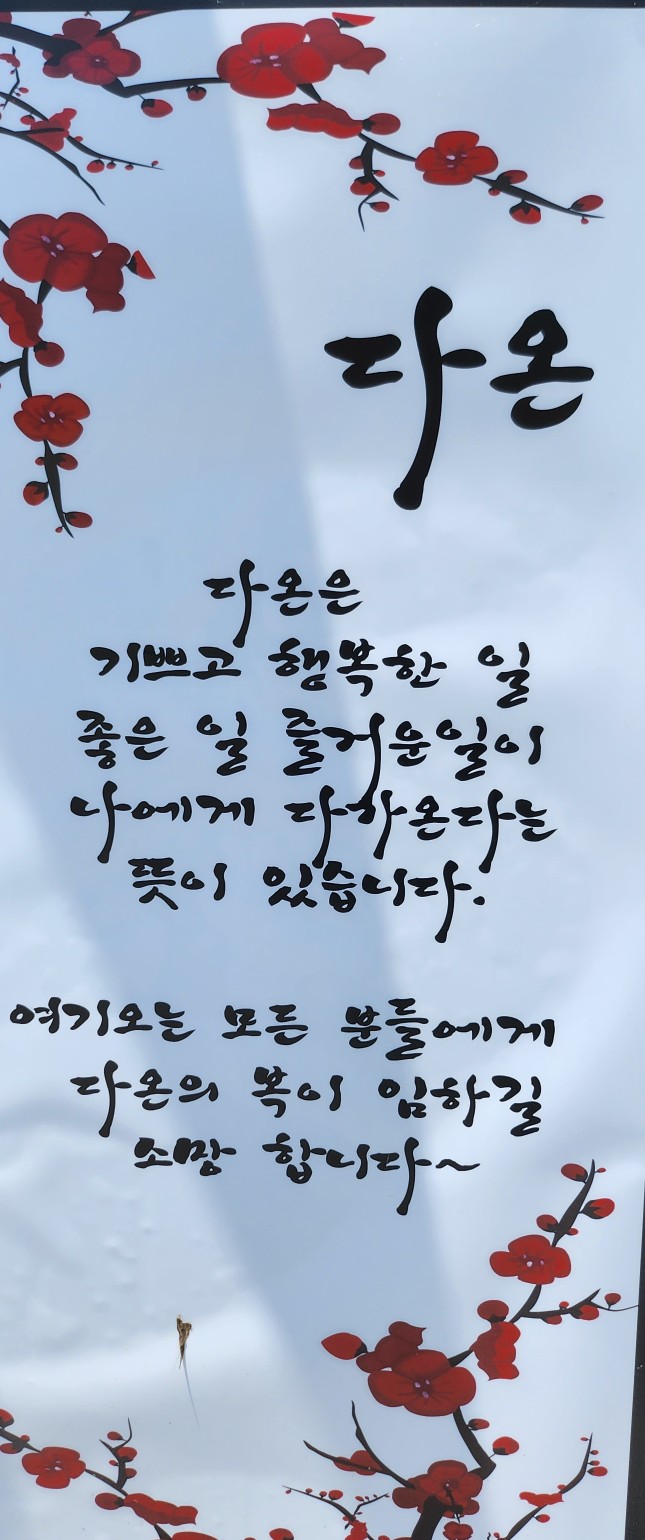 다온
다온은
기쁘고 행복한 일
좋은 일 즐거운일이
나에게 다가온다는
뜻이 있습니다.
여기오는 모든 분들에게
다온의 복이 임하길
소망 합니다~